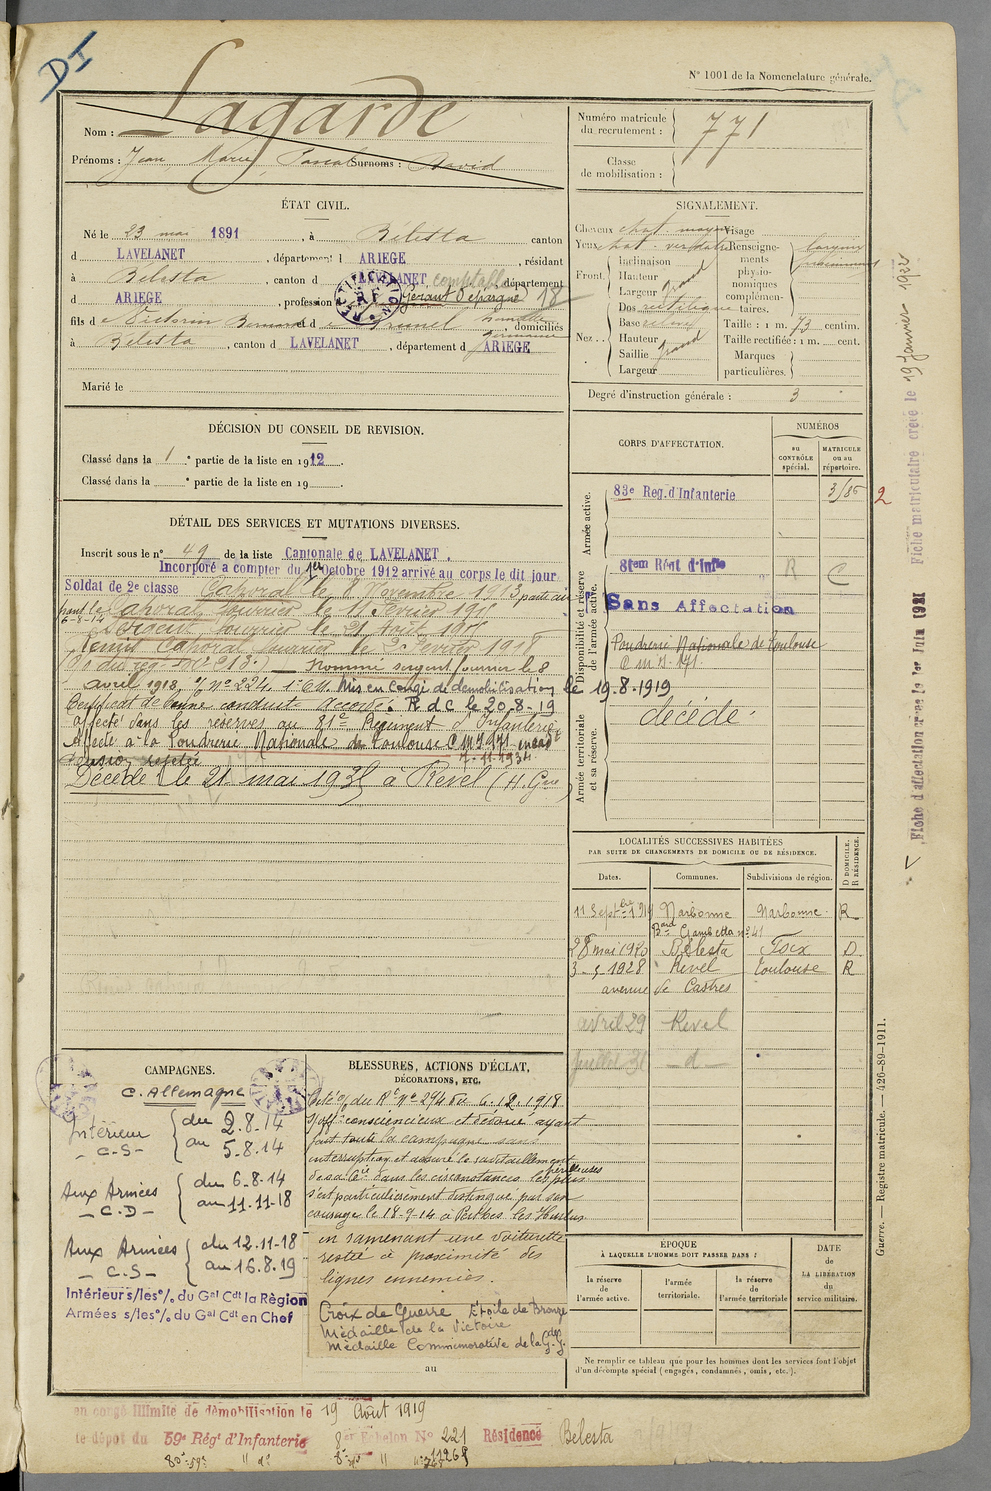 DI
N° 1001 de la Nomenclature générale.
Nom : Lagarde
Prénoms : Jean, Marie, Pascal Surnoms : David
Numéro matricule
du recrutement : 771
Classe
de mobilisation :
ÉTAT CIVIL.
Né le 23 mai 1891, à Bélesta canton
d LAVELANET, département d ARIEGE, résidant
à Bélesta, canton d LAVELANET, département
comptable
d ARIEGE, profession Gérant D'épargne 18
fils de Victorin et de Brunel, domiciliés
à Bélesta, canton d LAVELANET, département d ARIEGE
Marié le
SIGNALEMENT.
Cheveux chat. moyen Visage
Yeux chat. verdatre Renseigne-
ments
physio-
nomiques
complémen-
taires.
Front. Inclinaison
Hauteur grand
Largeur
Nez . . Dos rectiligne
Base
Hauteur grand
Saillie
Largeur
Taille : 1 m. 73 centim.
Taille rectifiée : 1 m. cent.
Marques
particulières.
Degré d'instruction générale : 3
DÉCISION DU CONSEIL DE REVISION.
Classé dans la 1e partie de la liste en 1912.
Classé dans la e partie de la liste en 19
DÉTAIL DES SERVICES ET MUTATIONS DIVERSES.
Inscrit sous le n° 49 de la liste Cantonale de LAVELANET.
Incorporé a compter du 1er Octobre 1912 arrivé au corps le dit jour
Soldat de 2e classe Caporal le 8 Novembre 1913 parti aux
6-8-14 Caporal fourrier le 11 Février 1915
Sergent fourrier le 21 Août 1915
Remis Caporal fourrier le 2 Février 1918
Nommé sergent fourrier le 8
avril 1918, Mis en congé de démobilisation le 19.8.1919
Certificat de bonne conduite accordé. R d C le 20.8.19
affecté dans les réserves au 81e Régiment d'Infanterie
Affecté à la Poudrerie Nationale de Toulouse
7-11-1934
Décédé le 21 mai 1935 à Revel (H. Gne)
CORPS D'AFFECTATION.
NUMÉROS
au
CONTRÔLE
spécial.
MATRICULE
ou au
répertoire.
Armée active.
83e Reg. d'Infanterie 3/85 2
Disponibilité et réserve
de l'armée active.
81em Régt d'Infie R C
Sans Affectation
Poudrerie Nationale de Toulouse
Armée territoriale
et sa réserve.
décédé.
LOCALITÉS SUCCESSIVES HABITÉES
PAR SUITE DE CHANGEMENTS DE DOMICILE OU DE RÉSIDENCE.
Dates. Communes. Subdivisions de région. D DOMICILE. R RÉSIDENCE.
11 Septbre 1919 Narbonne Narbonne R
Bard Gambetta n° 41
28 mai 1920 Bélesta Foix D
3-5-1928 Revel Toulouse R
avenue de Castres
avril 29 Revel
juillet 31 -d-
CAMPAGNES.
C. Allemagne
Intérieur du 2.8.14
- C.S - au 5.8.14
Aux Armées du 6.8.14
- C.D - au 11.11.18
Aux Armées du 12.11.18
- C.S - au 16.8.19
Intérieur s/les °/. du Gal Cdt la Région
Armées s/les °/. du Gal Cdt en Chef
BLESSURES, ACTIONS D'ÉCLAT,
DÉCORATIONS, ETC.
Cité O/ du Rt N° 294 du 6.12.1918
S/off. consciencieux et dévoué ayant
fait toute la campagne sans
interruption et assuré le ravitaillement
de sa Cie dans les circonstances les plus périlleuses
s'est particulièrement distingué par son
courage le 18-9-14 à Perthes les Hurlus
en ramenant une voiturette
restée à proximité des
lignes ennemies.
Croix de Guerre Etoile de Bronze
Médaille de la Victoire
Médaille Commémorative de la Gde G.
au
ÉPOQUE
À LAQUELLE L'HOMME DOIT PASSER DANS :
la réserve
de
l'armée active.
l'armée
territoriale.
la réserve
de
l'armée territoriale
DATE
de
LA LIBÉRATION
du
service militaire.
Ne remplir ce tableau que pour les hommes dont les services font l'objet
d'un décompte spécial (engagés, condamnés, omis, etc.).
Guerre. — Registre matricule. — 426-89-1911.
Fiche matriculaire créée le 19 Janvier 1922
Fiche d'affectation créée le 1er Juin 1921
en congé illimité de démobilisation le 19 Août 1919
le dépot du 59e Régt d'Infanterie 8er Echelon N° 221 Résidence Bélesta